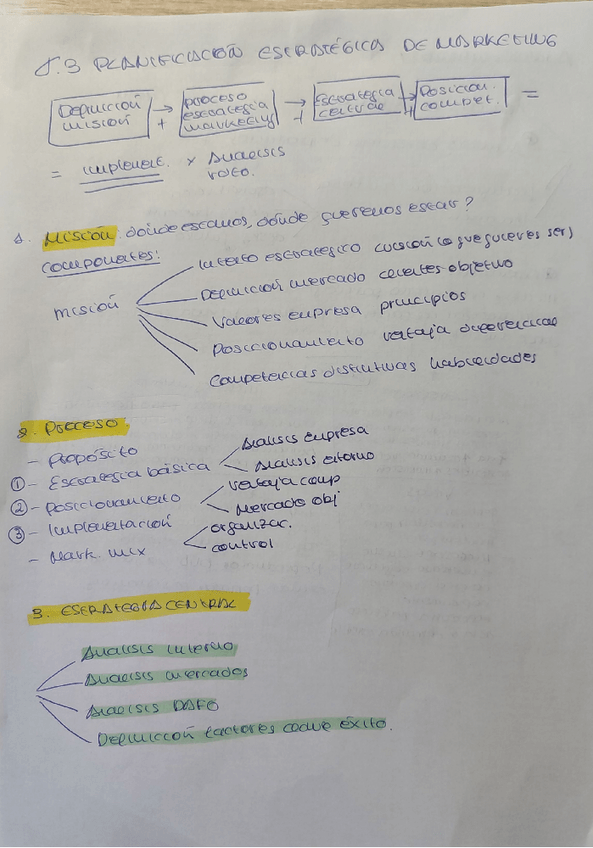 5.3 PLANIFICACIÓN ESTRATÉGICA DE MARKETING
Definición misión → + Proceso estrategia marketing → + Estrategia central → + Posicion. compet. =
= Implement. x Análisis
rdto.
1. Misión: dónde estamos, dónde queremos estar?
Componentes:
Misión
Intento estratégico (visión (lo que quieres ser)
Definición mercado clientes objetivo
Valores empresa principios
Posicionamiento ventaja diferencial
Competencias distintivas habilidades
2. PROCESO
- Propósito
① - Estrategia básica
Análisis empresa
Análisis entorno
② - Posicionamiento
Ventaja comp
Mercado obj
③ - Implementación
- Mark. mix
organizac.
control
3. ESTRATEGIA CENTRAL
Análisis interno
Análisis mercados
Análisis DAFO
Definición factores clave éxito.